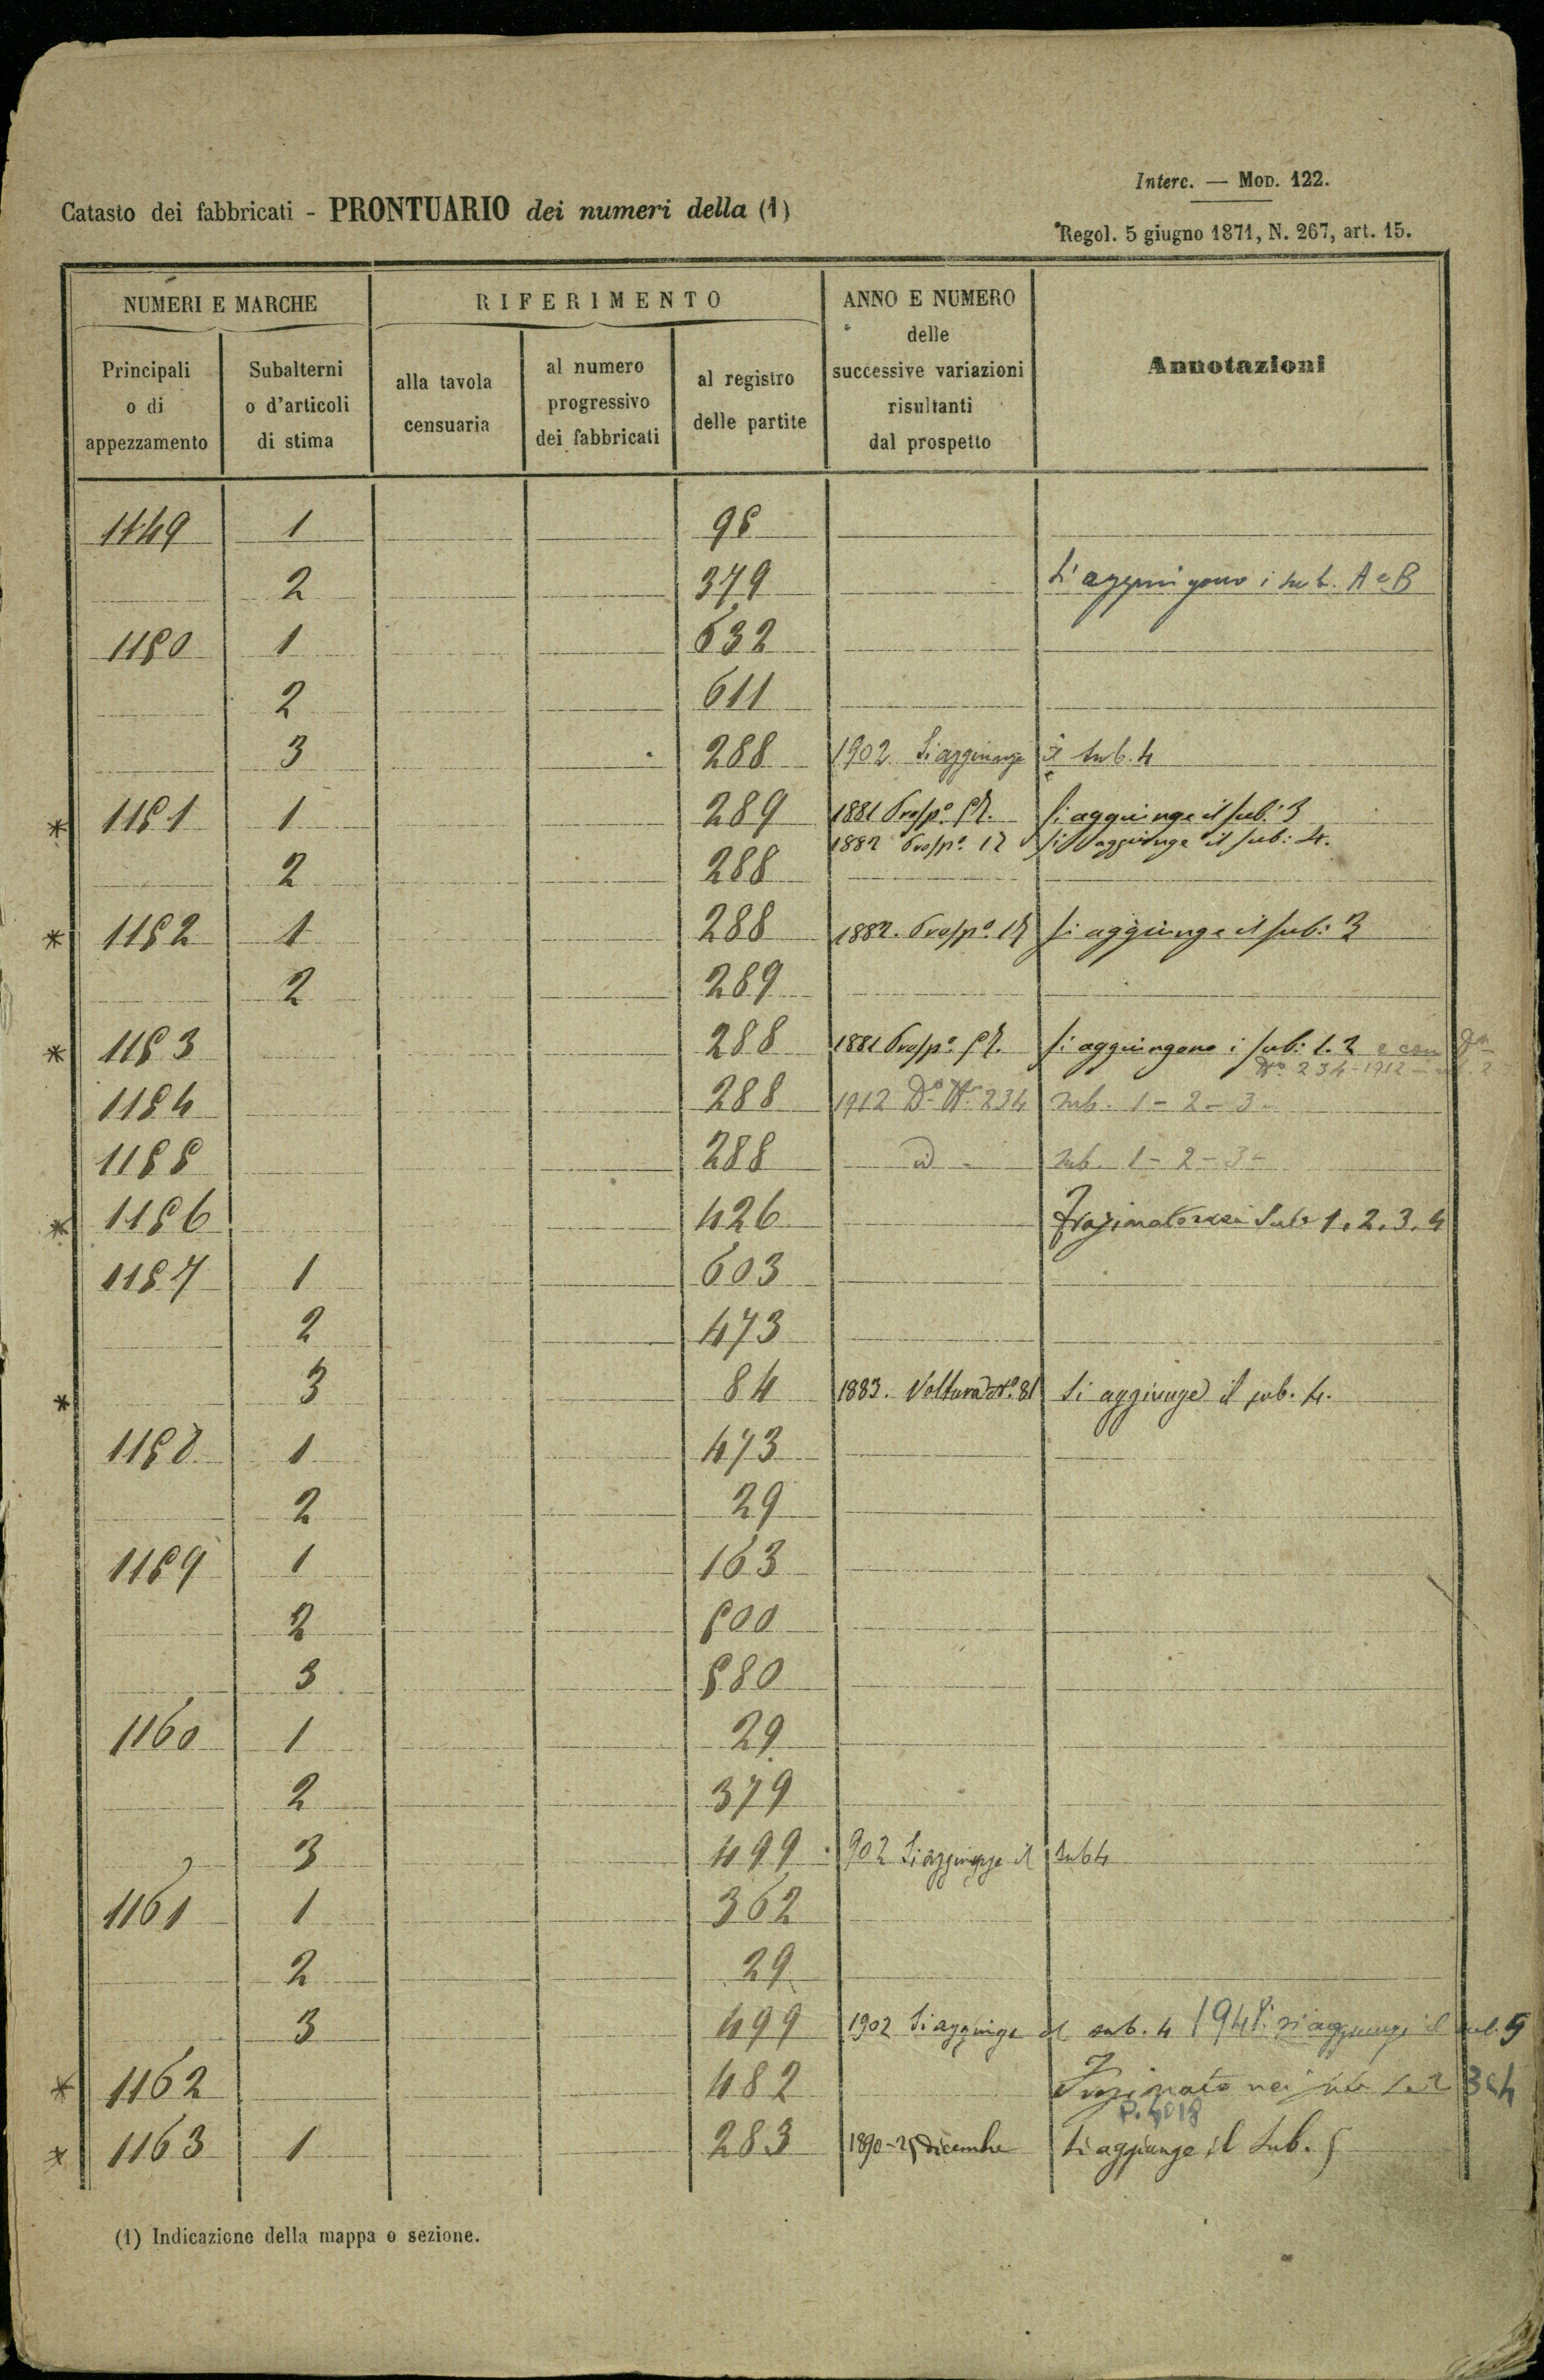 Interc. — Mod. 122.
Catasto dei fabbricati - PRONTUARIO dei numeri della (1)
Regol. 5 giugno 1871, N. 267, art. 15.
NUMERI E MARCHE
RIFERIMENTO
ANNO E NUMERO
delle
successive variazioni
risultanti
dal prospetto
Annotazioni
Principali
o di
appezzamento
Subalterni
o d'articoli
di stima
alla tavola
censuaria
al numero
progressivo
dei fabbricati
al registro
delle partite
1149 1 95
2 379 Si aggiungono i sub. A e B
1150 1 632
2 611
3 288 1902 Si aggiunge il sub. 4
* 1151 1 289 1881 Prosp.o 57. Si aggiunge il sub: 3
1882 Prosp.o 17 Si aggiunge il sub: 4.
2 288
* 1152 1 288 1882. Prosp.o 17 Si aggiunge il sub: 3
2 289
* 1153 288 1881 Prosp.o 57. Si aggiungono i sub: 1. 2 e con
No 234-1912
1154 288 1912 Da No 234 sub. 1 - 2 - 3 -
1155 288 id sub. 1 - 2 - 3 -
* 1156 426 Sub 1, 2, 3, 4
1157 1 603
2 473
* 3 84 1883. Voltura No. 81 Si aggiunge il sub. 4.
1158 1 473
2 29
1159 1 163
2 500
3 580
1160 1 29
2 379
3 499 902 Si aggiunge il sub 4
1161 1 362
2 29
3 499 1902 Si aggiunge il sub. 4 1948 si aggiunge il sub. 5
* 1162 482 Frazionato nei sub 1. 2 3 e 4
* 1163 1 283 1890 - 25 Dicembre Si aggiunge il Sub. 5
(1) Indicazione della mappa o sezione.